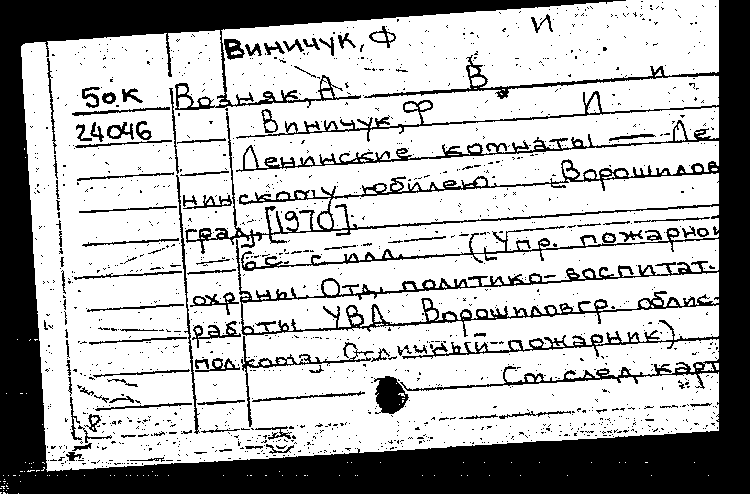 Виничук, Ф И
50К Возняк, А. В. и
24046 Виничук, Ф И
Ленинские комнаты — Ле
нинскому юбилею. Ворошилов
град, [1970].
6 с. с илл. (Упр. пожарной
охраны. Отд. политико-воспитат.
работы УВД Ворошиловгр. облис-
полкома. Отличный пожарник)
См. след. карт